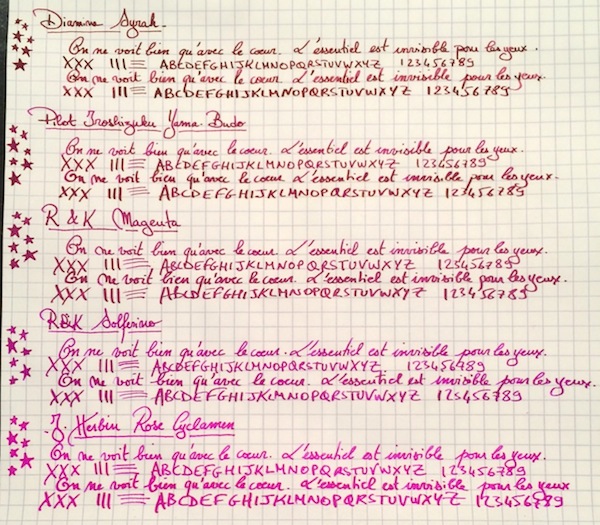 Diamine Syrah.
On ne voit bien qu'avec le coeur. L'essentiel est invisible pour les yeux.
XXX III ABCDEFGHIJKLMNOPQRSTUVWXYZ 123456789
On ne voit bien qu'avec le coeur. L'essentiel est invisible pour les yeux.
XXX III ABCDEFGHIJKLMNOPQRSTUVWXYZ 123456789
Pilot Iroshizuku Yama-Budo
On ne voit bien qu'avec le coeur. L'essentiel est invisible pour les yeux.
XXX III ABCDEFGHIJKLMNOPQRSTUVWXYZ 123456789
On ne voit bien qu'avec le coeur. L'essentiel est invisible pour les yeux.
XXX III ABCDEFGHIJKLMNOPQRSTUVWXYZ 123456789
R & K Magenta
On ne voit bien qu'avec le coeur. L'essentiel est invisible pour les yeux.
XXX III ABCDEFGHIJKLMNOPQRSTUVWXYZ 123456789
On ne voit bien qu'avec le coeur. L'essentiel est invisible pour les yeux.
XXX III ABCDEFGHIJKLMNOPQRSTUVWXYZ 123456789
R&K Solferino
On ne voit bien qu'avec le coeur. L'essentiel est invisible pour les yeux.
XXX III ABCDEFGHIJKLMNOPQRSTUVWXYZ 123456789
On ne voit bien qu'avec le coeur. L'essentiel est invisible pour les yeux.
XXX III ABCDEFGHIJKLMNOPQRSTUVWXYZ 123456789
J. Herbin Rose Cyclamen
On ne voit bien qu'avec le coeur. L'essentiel est invisible pour les yeux.
XXX III ABCDEFGHIJKLMNOPQRSTUVWXYZ 123456789
On ne voit bien qu'avec le coeur. L'essentiel est invisible pour les yeux
XXX III ABCDEFGHIJKLMNOPQRSTUVWXYZ 123456789